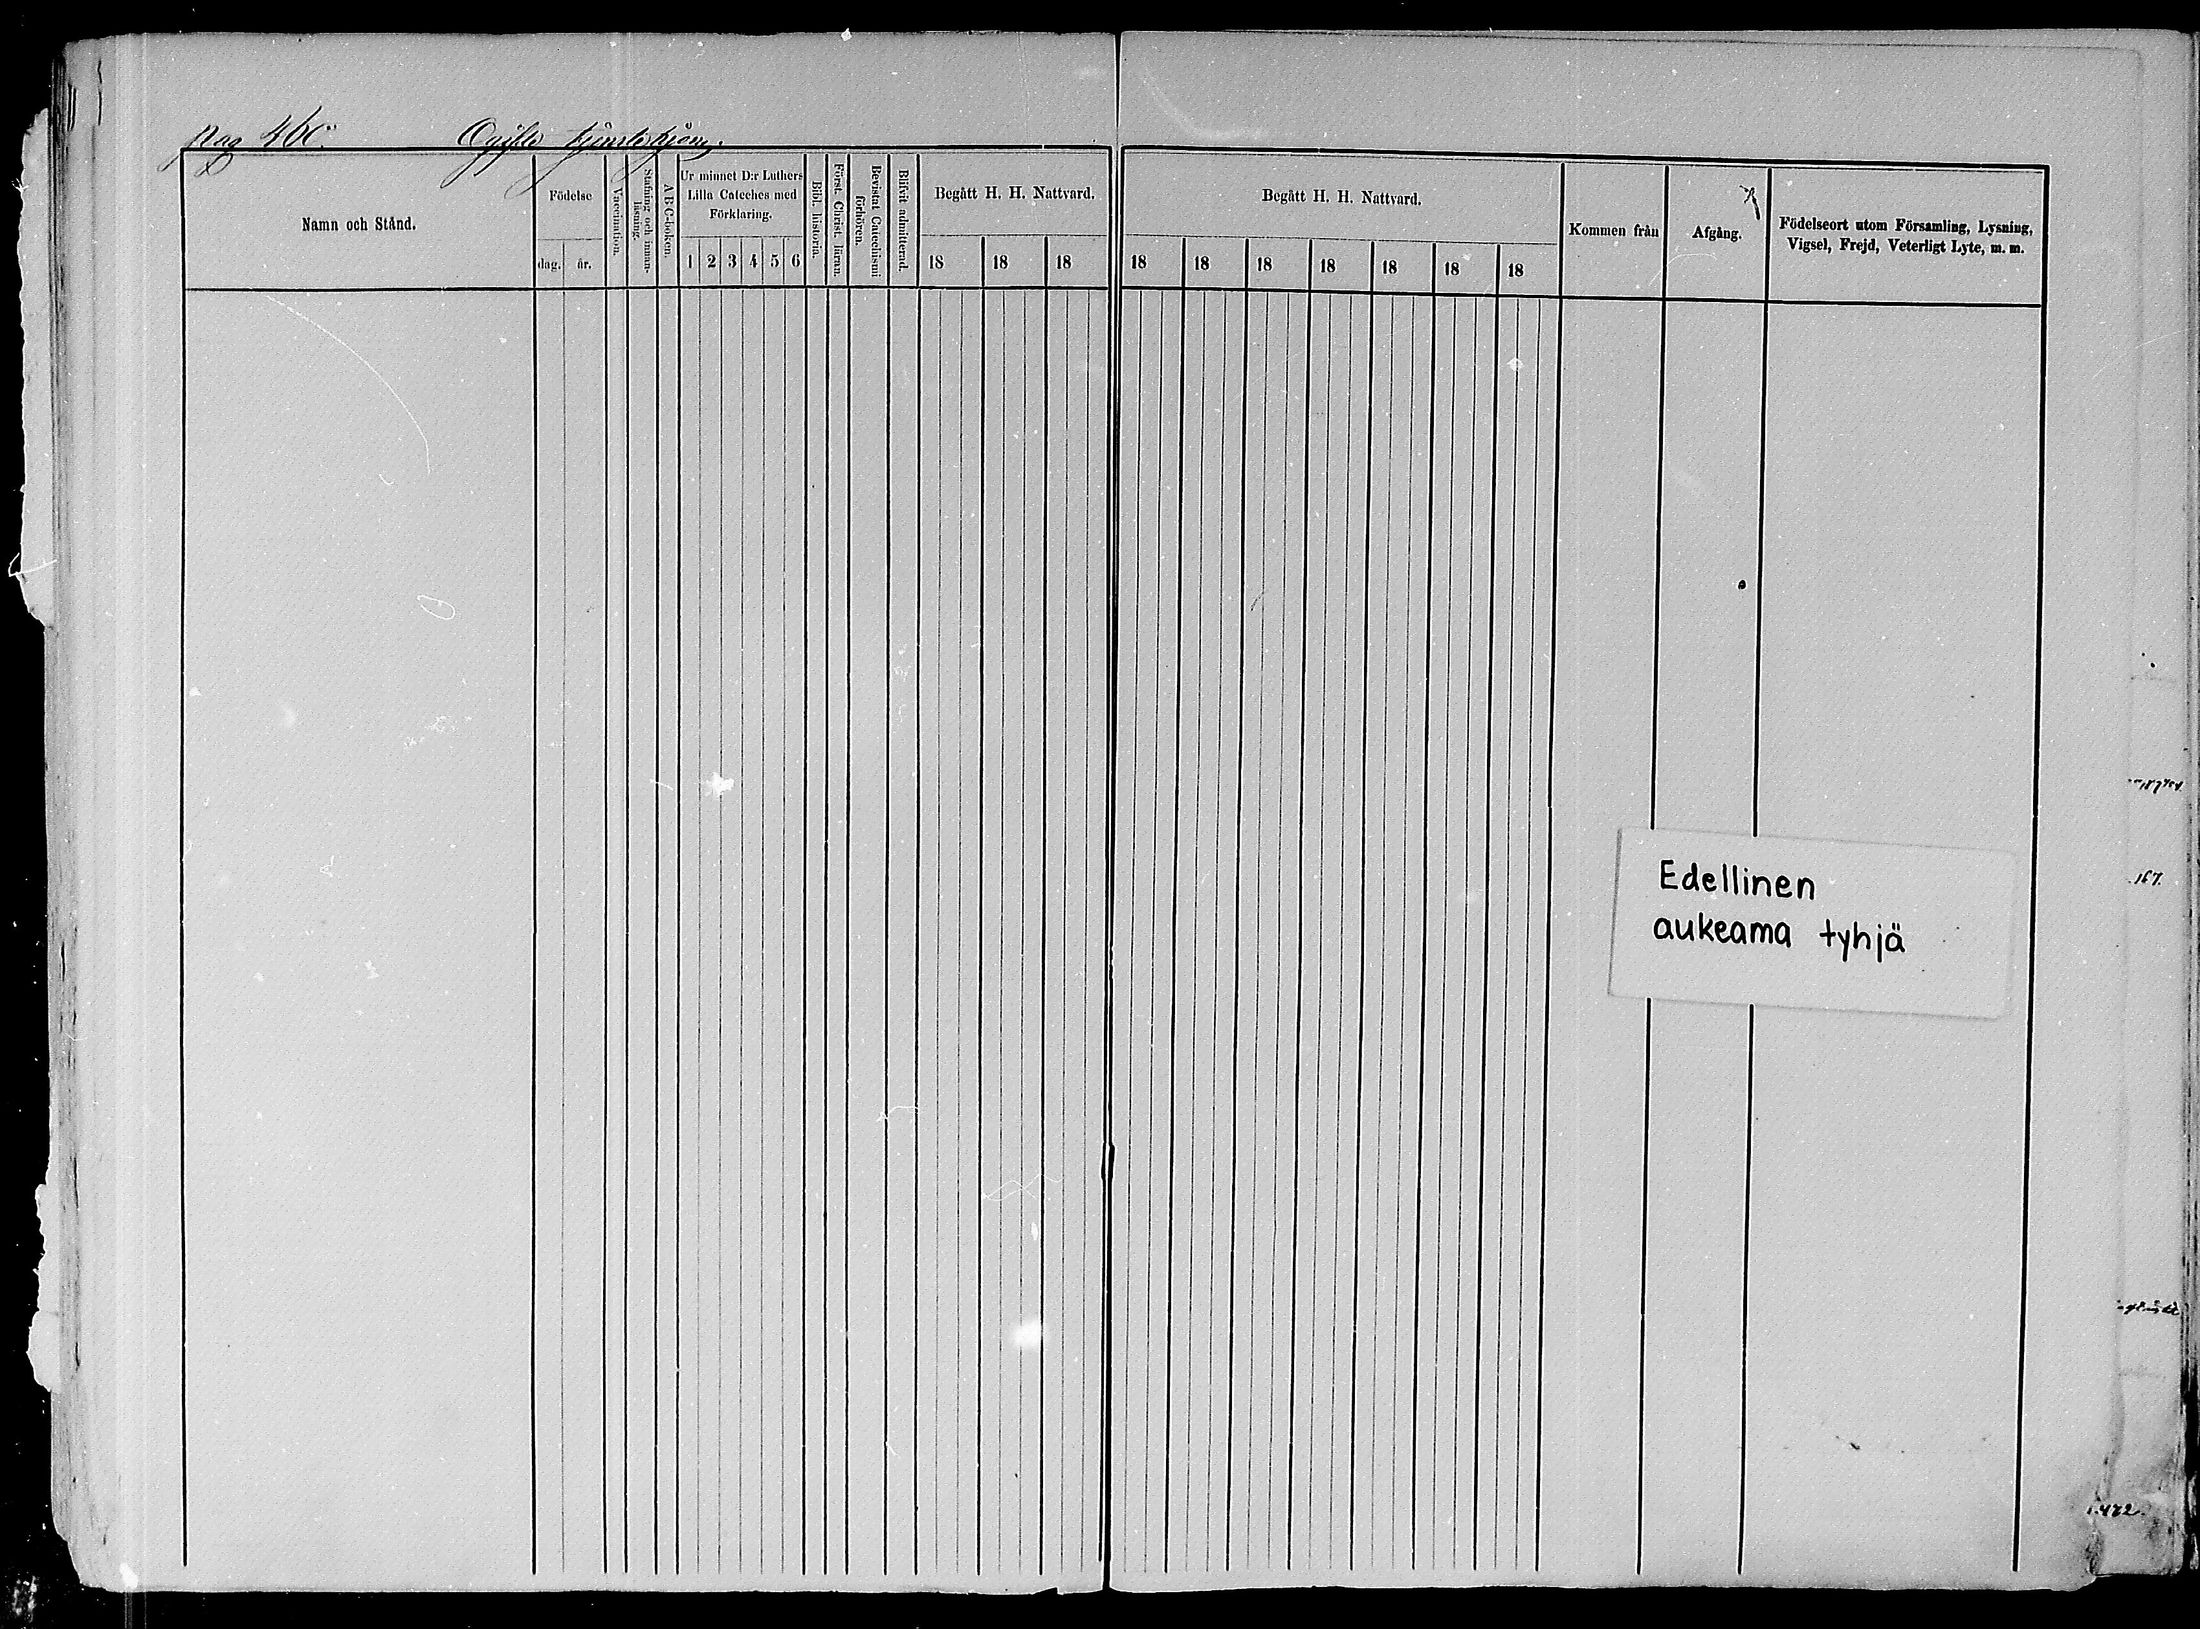 pag 460. Ogifte tjenstehjon.
Namn och Stånd.
Födelse
dag. år.
Vaccination.
Stafning och innan-
läsning.
ABC-boken.
Ur minnet D:r Luthers
Lilla Cateches med
Förklaring.
1 2 3 4 5 6
Bibl. historia.
Först. Christ. läran.
Bevistat Catechismi
förhören.
Blifvit admitterad.
Begått H. H. Nattvard.
18 18 18
Begått H. H. Nattvard.
18 18 18 18 18 18 18
Kommen från
Afgång.
Födelseort utom Församling, Lysning,
Vigsel, Frejd, Veterligt Lyte, m. m.
Edellinen
aukeama tyhjä
167.
472.